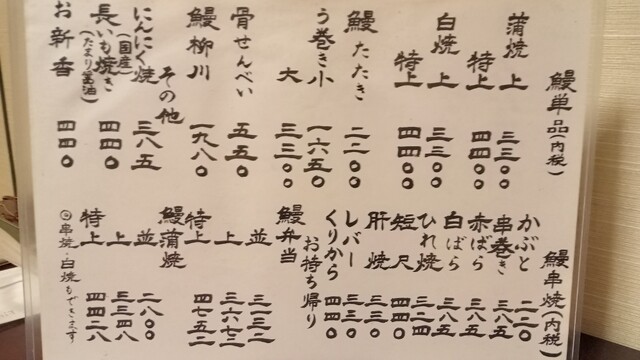 鰻単品(内税)
蒲焼 上 三三〇〇
特上 四四〇〇
白焼 上 三三〇〇
特上 四四〇〇
鰻たたき 二二〇〇
う巻き 小 一六五〇
大 三三〇〇
骨せんべい 五五〇
鰻柳川 一九八〇
その他
にんにく焼(国産) 三八五
長いも焼き(たまり醤油) 四四〇
お新香 四四〇
鰻串焼(内税)
かぶと 二二〇
串巻き 三三五
赤ばら 三八五
白ばら 三八五
ひれ焼 三二四
短尺 四四〇
肝焼 三三〇
レバー 三三〇
くりから 四四〇
お持ち帰り
鰻弁当
並 三一三二
上 三六七二
特上 四七五二
鰻蒲焼
並 二八〇〇
上 三三四八
特上 四四二八
◎串焼・白焼もできます